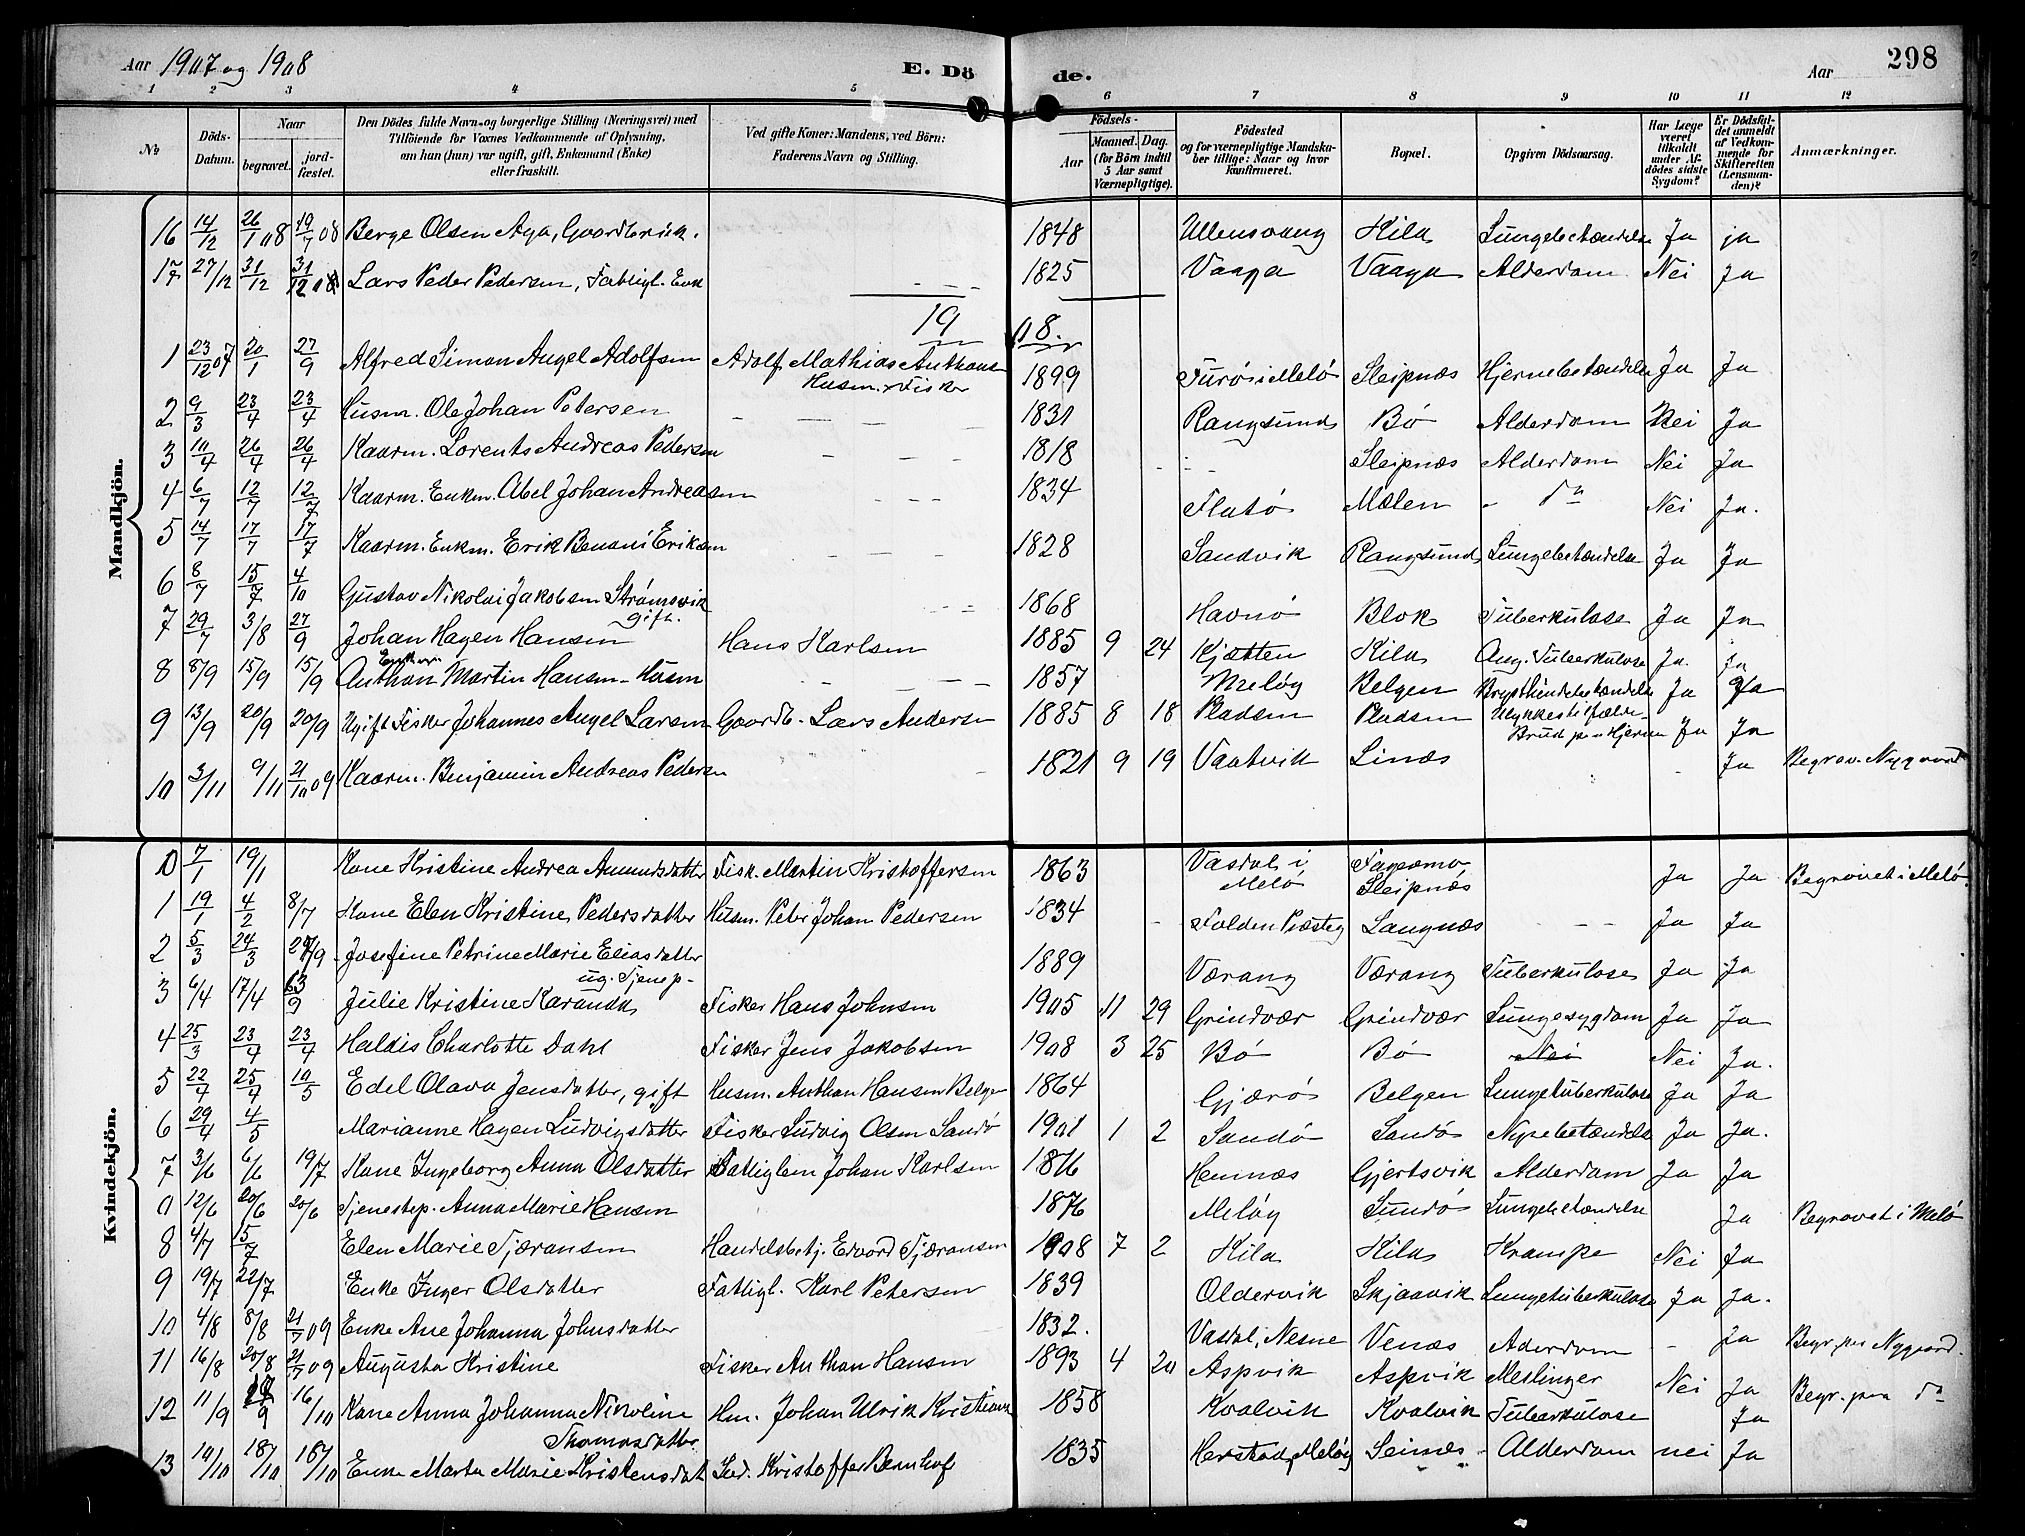 Aar 1907 og 1908 E. Dö de. Aar 298
1 2 3 4 5 6 7 8 9 10 11 12
№ Döds-Datum. Naar begravet. jord-fæstet. Den Dödes fulde Navn og borgerlige Stilling (Næringsvei) med Tilföiende for Voxnes Vedkommende af Oplysning, om han (hun) var ugift, gift, Enkemand (Enke) eller fraskilt. Ved gifte Koner: Mandens, ved Börn: Faderens Navn og Stilling. Födsels- Aar Maaned. Dag. (for Börn indtil 5 Aar samt Værnepligtige). Födested og for værnepligtige Mandskaber tillige: Naar og hvor konfirmeret. Bopæl. Opgiven Dödsaarsag. Har Læge været tilkaldt under Afdödes sidste Sygdom? Er Dödsfaldet anmeldt af Vedkommende for Skifteretten (Lensmanden)? Anmærkninger.
Mandkjön.
16 14/12 26/1 08 19/7 08 Berge Olsen Aga, Gaardbruk. 1848 Ullensvang Kila Lungebetændelse Ja ja
17 27/12 31/12 31/12 08 Lars Peder Pedersen, Fattigl. Enk - - - 1825 Vaaga Vaaga Alderdom Nei Ja
19 08.
1 23/12 07 20/1 27/9 Alfred Simon Angel Adolfsen Adolf Mathias Anthons Husm. & Fisker 1899 Furö i Melö Sleipnæs Hjernebetændelse Ja Ja
2 9/3 23/4 23/4 Husm. Ole Johan Petersen - - - - 1831 Rangsund Bö Alderdom Nei Ja
3 10/4 26/4 26/4 Kaarm. Lorents Andreas Pedersen - - - 1818 - - - Sleipnæs Alderdom Nei Ja
4 6/7 12/7 12/7 Kaarm. Enkm. Abel Johan Andreassen - - - 1834 Flatö Mælen - do Nei Ja.
5 14/7 17/7 17/7 Kaarm. Enkm. Erik Benoni Eriksen - - - - 1828 Sandvik Rangsund Lungebetændelse Ja Ja
6 8/7 15/7 4/10 Gustav Nikolai Jakobsen Strømsvik gift. - - - 1868 Havnö Blok Tuberkulose Ja Ja
7 29/7 3/8 27/9 Johan Hagen Hansen Hans Karlsen 1885 9 24 Kjøtten Kila Ang. Tuberkulose Ja. ja
8 8/9 15/9 15/9 Anthon Martin Hansen - Husm - - - 1857 Meløy Belgen Brysthindebetændelse Ja Ja
9 13/9 20/9 20/9 Ugift Fisker Johannes Angel Larsen Gaardb. Lars Andersen 1885 8 18 Pladsen Pladsen Ulykkestilfælde - Brud paa Hjernen Ja Ja
10 3/11 9/11 21/10 09 Kaarm. Benjamin Andreas Pedersen 1821 9 19 Vaatvik Linæs - Ja Begrav. Nygaard
Kvindekjön.
0 7/1 19/1 Kone Kristine Andrea Amundsdatter Fisk. Martin Kristoffersen 1863 Vasdal i Melö Sleipnæs Ja Ja Begravet i Melö.
1 19/1 4/2 8/7 Kone Elen Kristine Pedersdatter Husm. Peter Johan Pedersen 1834 - Folden Præsteg Langnæs - - - Ja Ja
2 5/3 24/3 27/9 Josefine Petrine Marie Eliasdatter ug. Tjenep - 1889 Værang Værang Tuberkulose Ja Ja
3 6/4 17/4 Julie Kristine Fisker Hans Johnsen 1905 11 29 Grindvær Grindvær Lungesygdom Ja Ja
4 25/3 23/4 23/4 Haldis Charlotte Dahl Fisker Jens Jakobsen 1908 3 25 Bö Bö Nei Nei Ja.
5 22/4 25/4 10/5 Edel Olava Jensdatter, gift Husm. Anthon Hansen Belgen 1864 Gjærö Belgen Lungetuberkulose Ja Ja
6 29/4 4/5 Marianne Hagen Ludvigsdatter Fisker Ludvig Olsen Sandö 1901 1 2 Sandö Sandö Nyrebetændelse Ja Ja.
7 3/6 6/6 19/7 Kone Ingeborg Anna Olsdatter Fattiglem Johan Karlsen Hemnæs Gjertsvik Alderdom Ja Ja
0 12/6 20/6 20/6 Tjenestep. Anna Marie Hansen 1876 Meløy Sundö Lungebetændelse Ja Begravet i Melö
8 4/7 15/7 Elen Marie Tjæransen Handelsbetj. Edvard Tjæransen 1908 7 2 Kila Kila Krampe Nei Ja
9 19/7 22/7 Enke Inger Olsdatter Fattigl. Karl Petersen 1839 Oldervik Skjaavik Lungetuberkulose Ja Ja.
10 4/8 8/8 21/7 09 Enke Ane Johanna Johnsdatter 1832. Vasdal, Nesne Venæs Aderdom - Ja Begr. paa Nygaard.
11 16/8 20/8 21/7 09 Augusta Kristine Fisker Anthon Hansen 1893 4 20 Aspvik Aspvik Meslinger Nei Ja Begr. paa do
12 11/9 16/10 Kone Anna Johanna Nikoline Thomasdatter Hm. Johan Ulrik Kristians 1858 Kvalvik Kvalvik Tuberkulose Ja
13 10/10 18/10 18/10 Enke Marta Marie Kristensdat Kristoffer Bernhof 1835 Herstad, Meløy Seines - Alderdom nei Ja